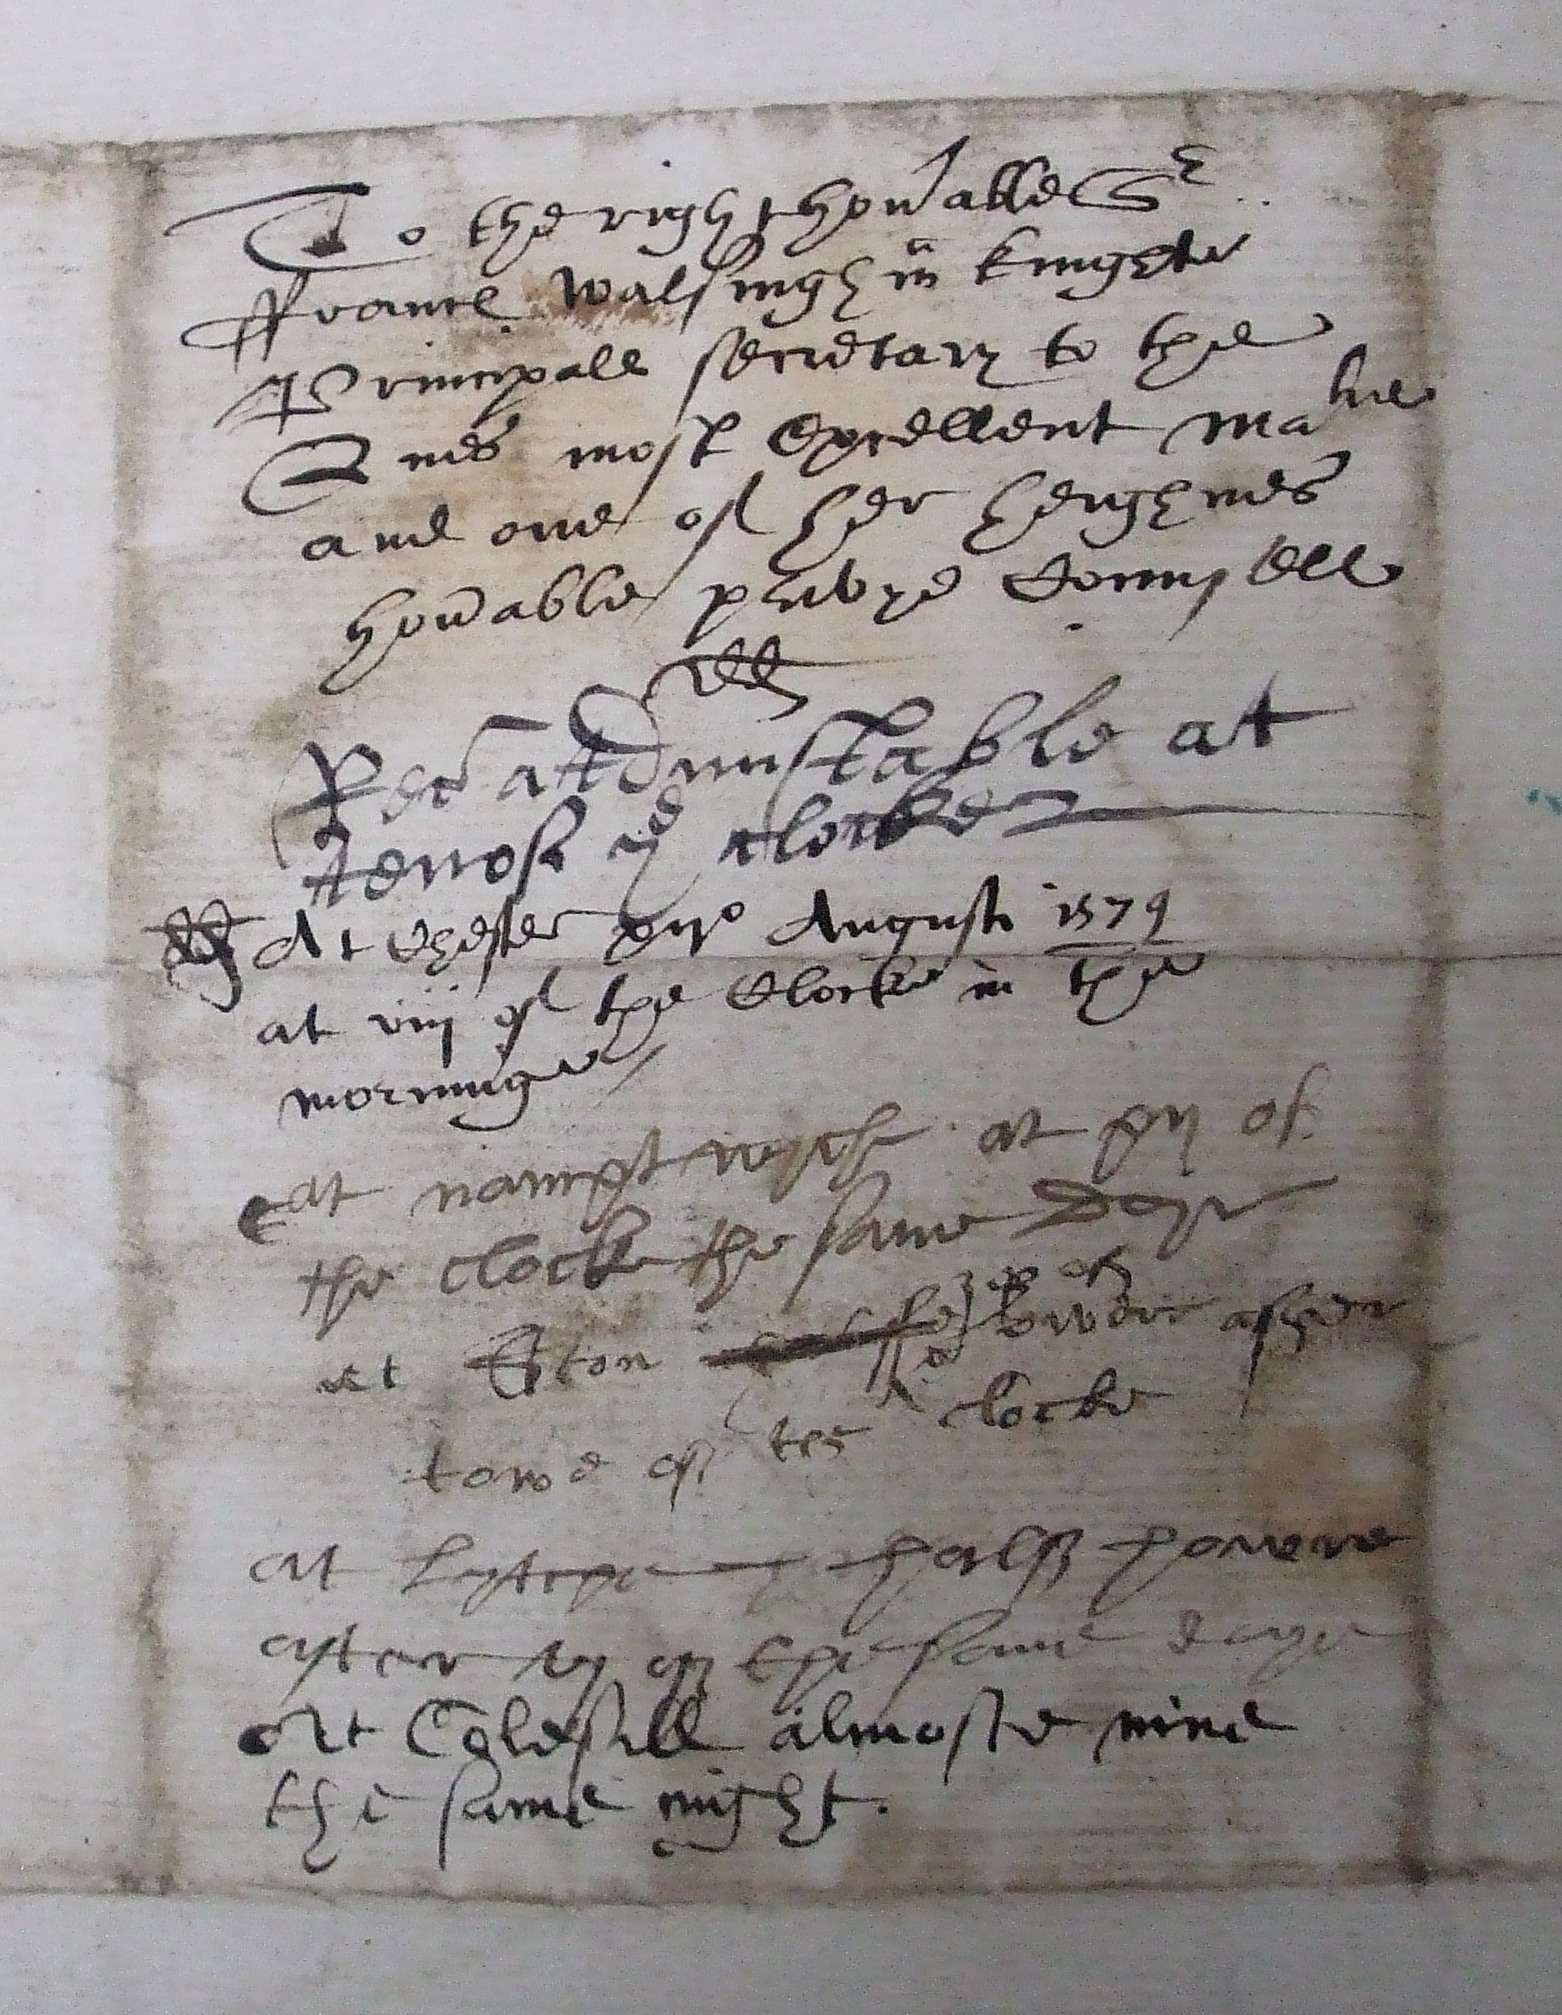 To the right honable Sr
Frauncs Walsingham knight
Principall secretary to the
Quenes most Excellent matie
and one of her heighnes
honable pryvye Counsell
Recd at Dunstable at
ten of ye clocke
At Chester xiijo Augusti 1579
at viij of the Clocke in the
morninge
At namptwyche at xij of
the clocke the same Daye
at Ston
towe of the clocke
at halff howere
after of the same daye
At Colesill almoste nine
the same night.